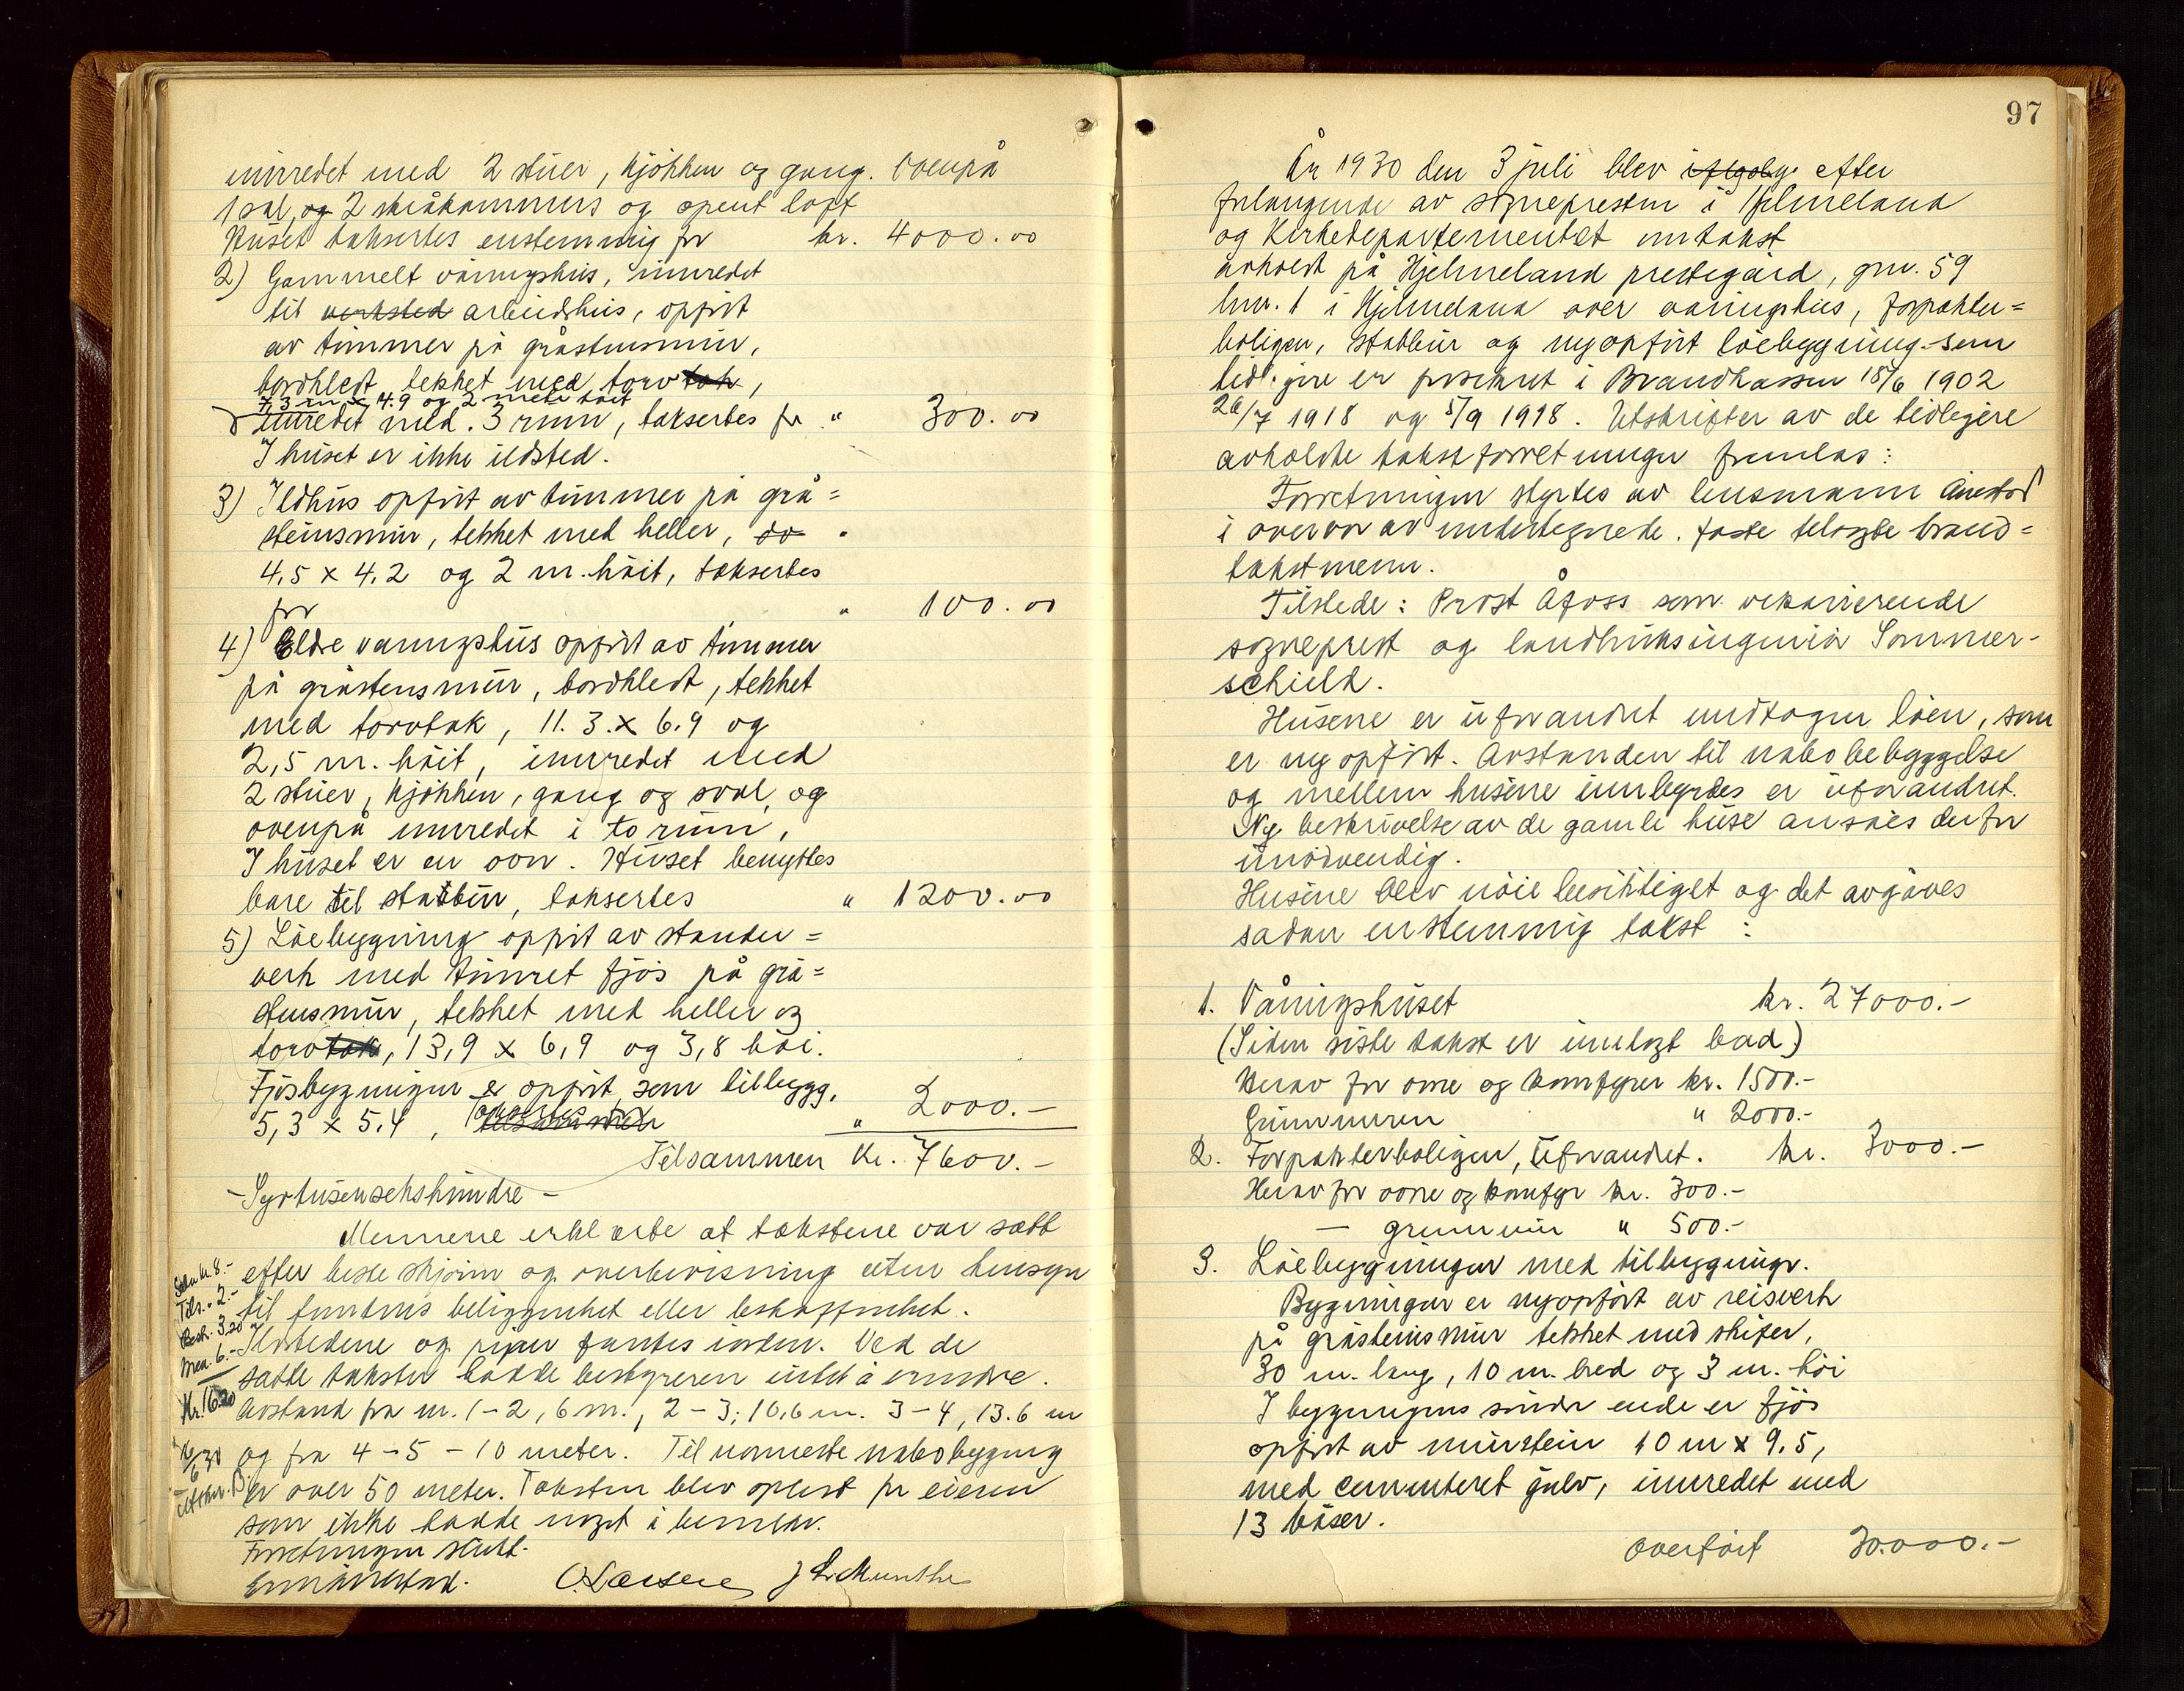 innredet med 2 stuer, kjøkken og gang. Ovenpå
1 sal, og 2 skråkammers og opent loft
Huset taksertes enstemmig for kr. 4000.00
2) Gammelt våningshus, innredet
til verksted arbeidshus, opført
av tømmer på gråstensmur,
bordkledt, tekket med torvtak,
7,3 m x 4.9 og 2 meter høit
innredet med. 3 rum, taksertes for " 300.00
I huset er ikke ildsted.
3) Ildhus opført av tømmer på grå=
steinsmur, tekket med heller,
4,5 x 4.2 og 2 m. høit, taksertes
for " 100.00
4) Eldre vaningshus opført av tømmer
på gråstensmur, bordkledt, tekket
med torvtak, 11.3. x 6.9 og
2,5 m. høit, innredet med
2 stuer, kjøkken, gang og sval, og
ovenpå innredet i to rum,
I huset er en ovn. Huset benyttes
bare til stabbur, taksertes " 1200.00
5) Løebygning opført av stender=
verk med tømret fjøs på grå=
stensmur, tekket med heller og
torvtak, 13,9 x 6,9 og 3,8 høi.
Fjøsbygningen er opført som tilbygg,
5,3 x 5.4, taksertes for " 2000.-
Tilsammen kr. 7600.-
- Syvtusenseks hundre -
Mennene erklærte at takstene var satt
efter beste skjønn og overbevisning uten hensyn
til tomtens beliggenhet eller beskaffenhet.
Ildstedene og piper fantes iorden. Ved de
satte takster hadde bestyreren intet å erindre.
Avstand fra nr. 1-2, 6 m., 2-3; 10,6 m. 3-4, 13.6 m
og fra 4-5 - 10 meter. Til nærmeste nabobygning
er over 50 meter. Taksten blev oplest for eieren
som ikke hadde noget å bemerke.
Forretningen slutt.
O. Larsen J L. Munthe
Tils. " 2.-
Besk. 3.20
Kr. 16.20
97
År 1930 den 3 juli blev efter
forlangende av sognepresten i Hjelmeland
og Kirkedepartementet omtakst
avholdt på Hjelmeland prestegård, gnr. 59
bnr. 1 i Hjelmeland over vaningshus, forpakter=
boligen, stabbur og nyopført løebygning - som
tidligere er forsikret i Brandkassen 18/6 1902
26/7 1918 og 5/9 1918. Utskrifter av de tidligere
avholdte takstforretninger fremlas:
Forretningen styrtes av lensmann Anestad
i overvær av undertegnede. faste tilagte brand=
takstmenn.
Tilstede: Prost Åfoss som vikarierende
sogneprest og landbruksingeniør Sommer-
schield.
Husene er uforandret undtagen løen, som
er nyopført. Avstanden til nabobebyggelse
og mellem husene innbyrdes er uforandret.
Ny beskrivelse av de gamle huse ansåes derfor
unødvendig.
Husene blev nøie besiktiget og det avgåves
sådan enstemmig takst :
1. Våningshuset kr. 27000.-
(Siden siste takst er innlagt bad)
Herav for ovne og komfyrer kr. 1500.-
Grunnmuren " 2000.-
2. Forpakterboligen, Uforandret. kr. 3000.-
Herav for ovne og komfyr kr. 300.-
— grunnmur " 500.-
3. Løebygningen med tilbygninger.
Bygningen er nyopført av reisverk
på gråsteinsmur tekket med skifer,
30 m. lang, 10 m. bred og 3 m. høi
I bygningens søndre ende er fjøs
opført av murstein 10 m x 9.5,
med cementeret gulv, innredet med
13 båser.
Overført 30.000.-